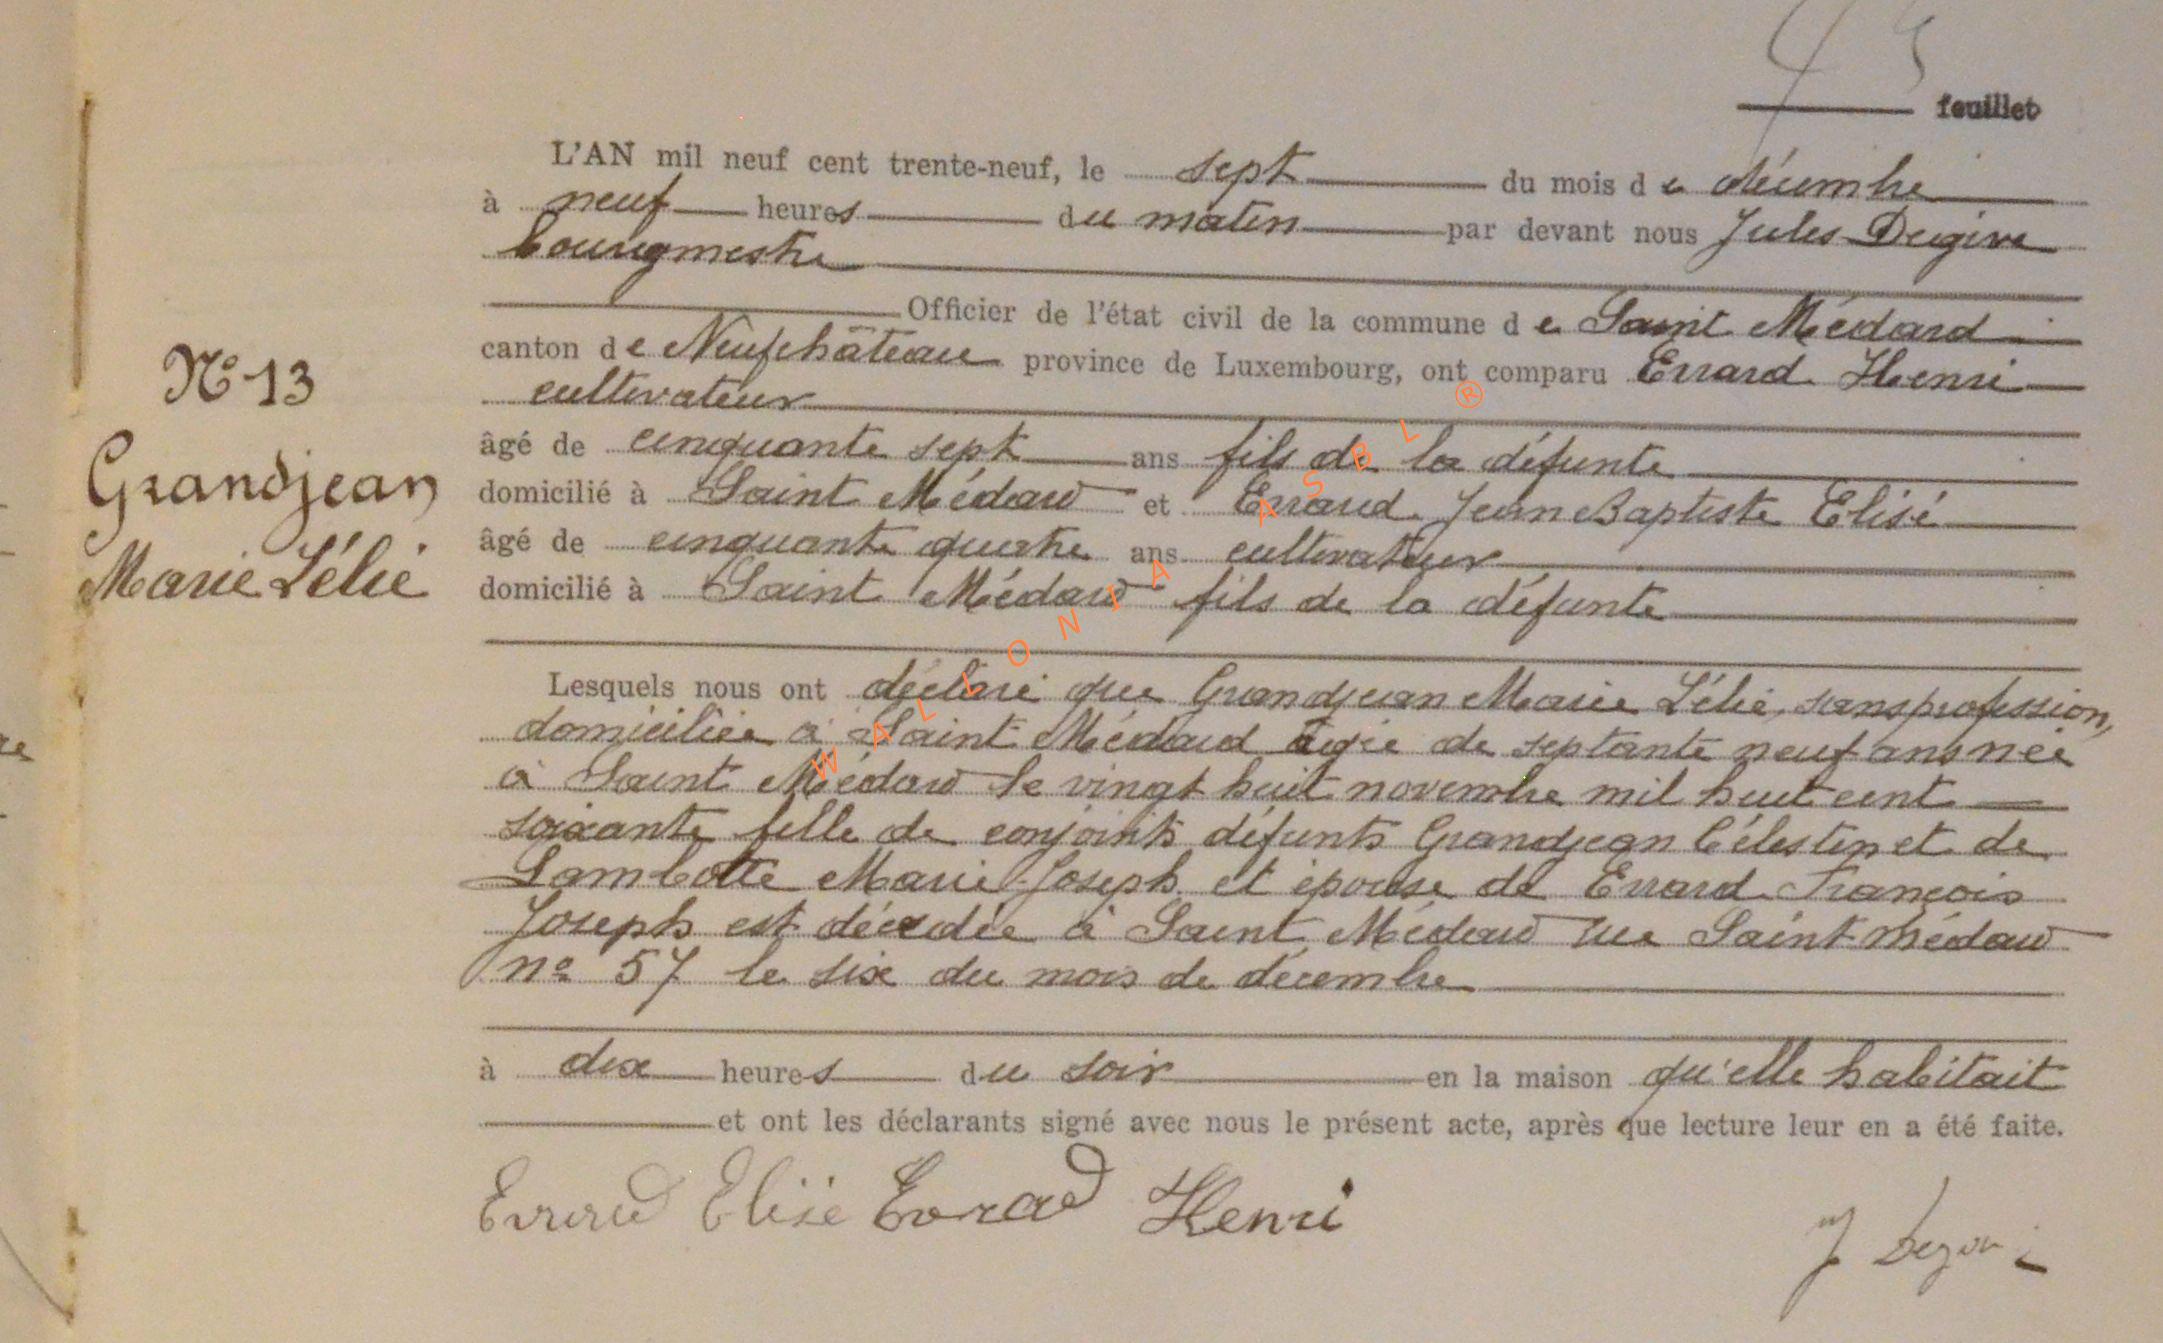 45
feuillet
L'AN mil neuf cent trente-neuf, le sept du mois de décembre
à neuf heures du matin par devant nous Jules Degive
bourgmestre
Officier de l'état civil de la commune de Saint Médard
canton de Neufchâteau province de Luxembourg, ont comparu Errard Henri
cultivateur
N° 13
Grandjean
Marie Lélie
âgé de cinquante sept ans fils de la défunte
domicilié à Saint Médard et Errard Jean Baptiste Elisé
âgé de cinquante quatre ans cultivateur
domicilié à Saint Médard fils de la défunte
Lesquels nous ont déclaré que Grandjean Marie Lélie, sans profession,
domiciliée à Saint Médard âgée de septante neuf ans née
à Saint Médard le vingt huit novembre mil huit cent
soixante fille de conjoints défunts Grandjean Célestin et de
Lambotte Marie-Joseph et épouse de Errard François
Joseph est décédée à Saint Médard rue Saint-médard
n° 57 le six du mois de décembre
à dix heures du soir en la maison qu'elle habitait
et ont les déclarants signé avec nous le présent acte, après que lecture leur en a été faite.
Errard Elisé Errard Henri
WALLONIA ASBL ®